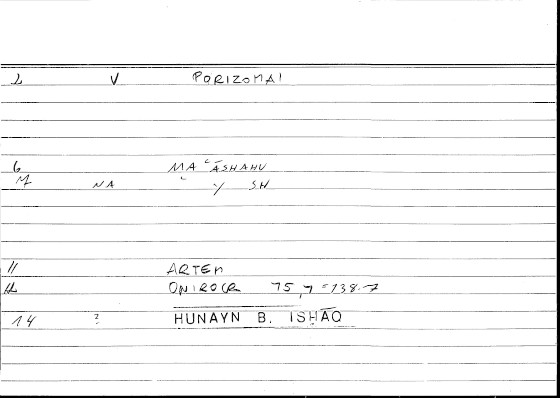 2 V PORIZOMAI
6 MA ʿĀSHAHU
NA ʿ Y SH
11 ARTEM
ONIROCR 75,7 = 138.7
14 ? HUNAYN B. ISHĀQ